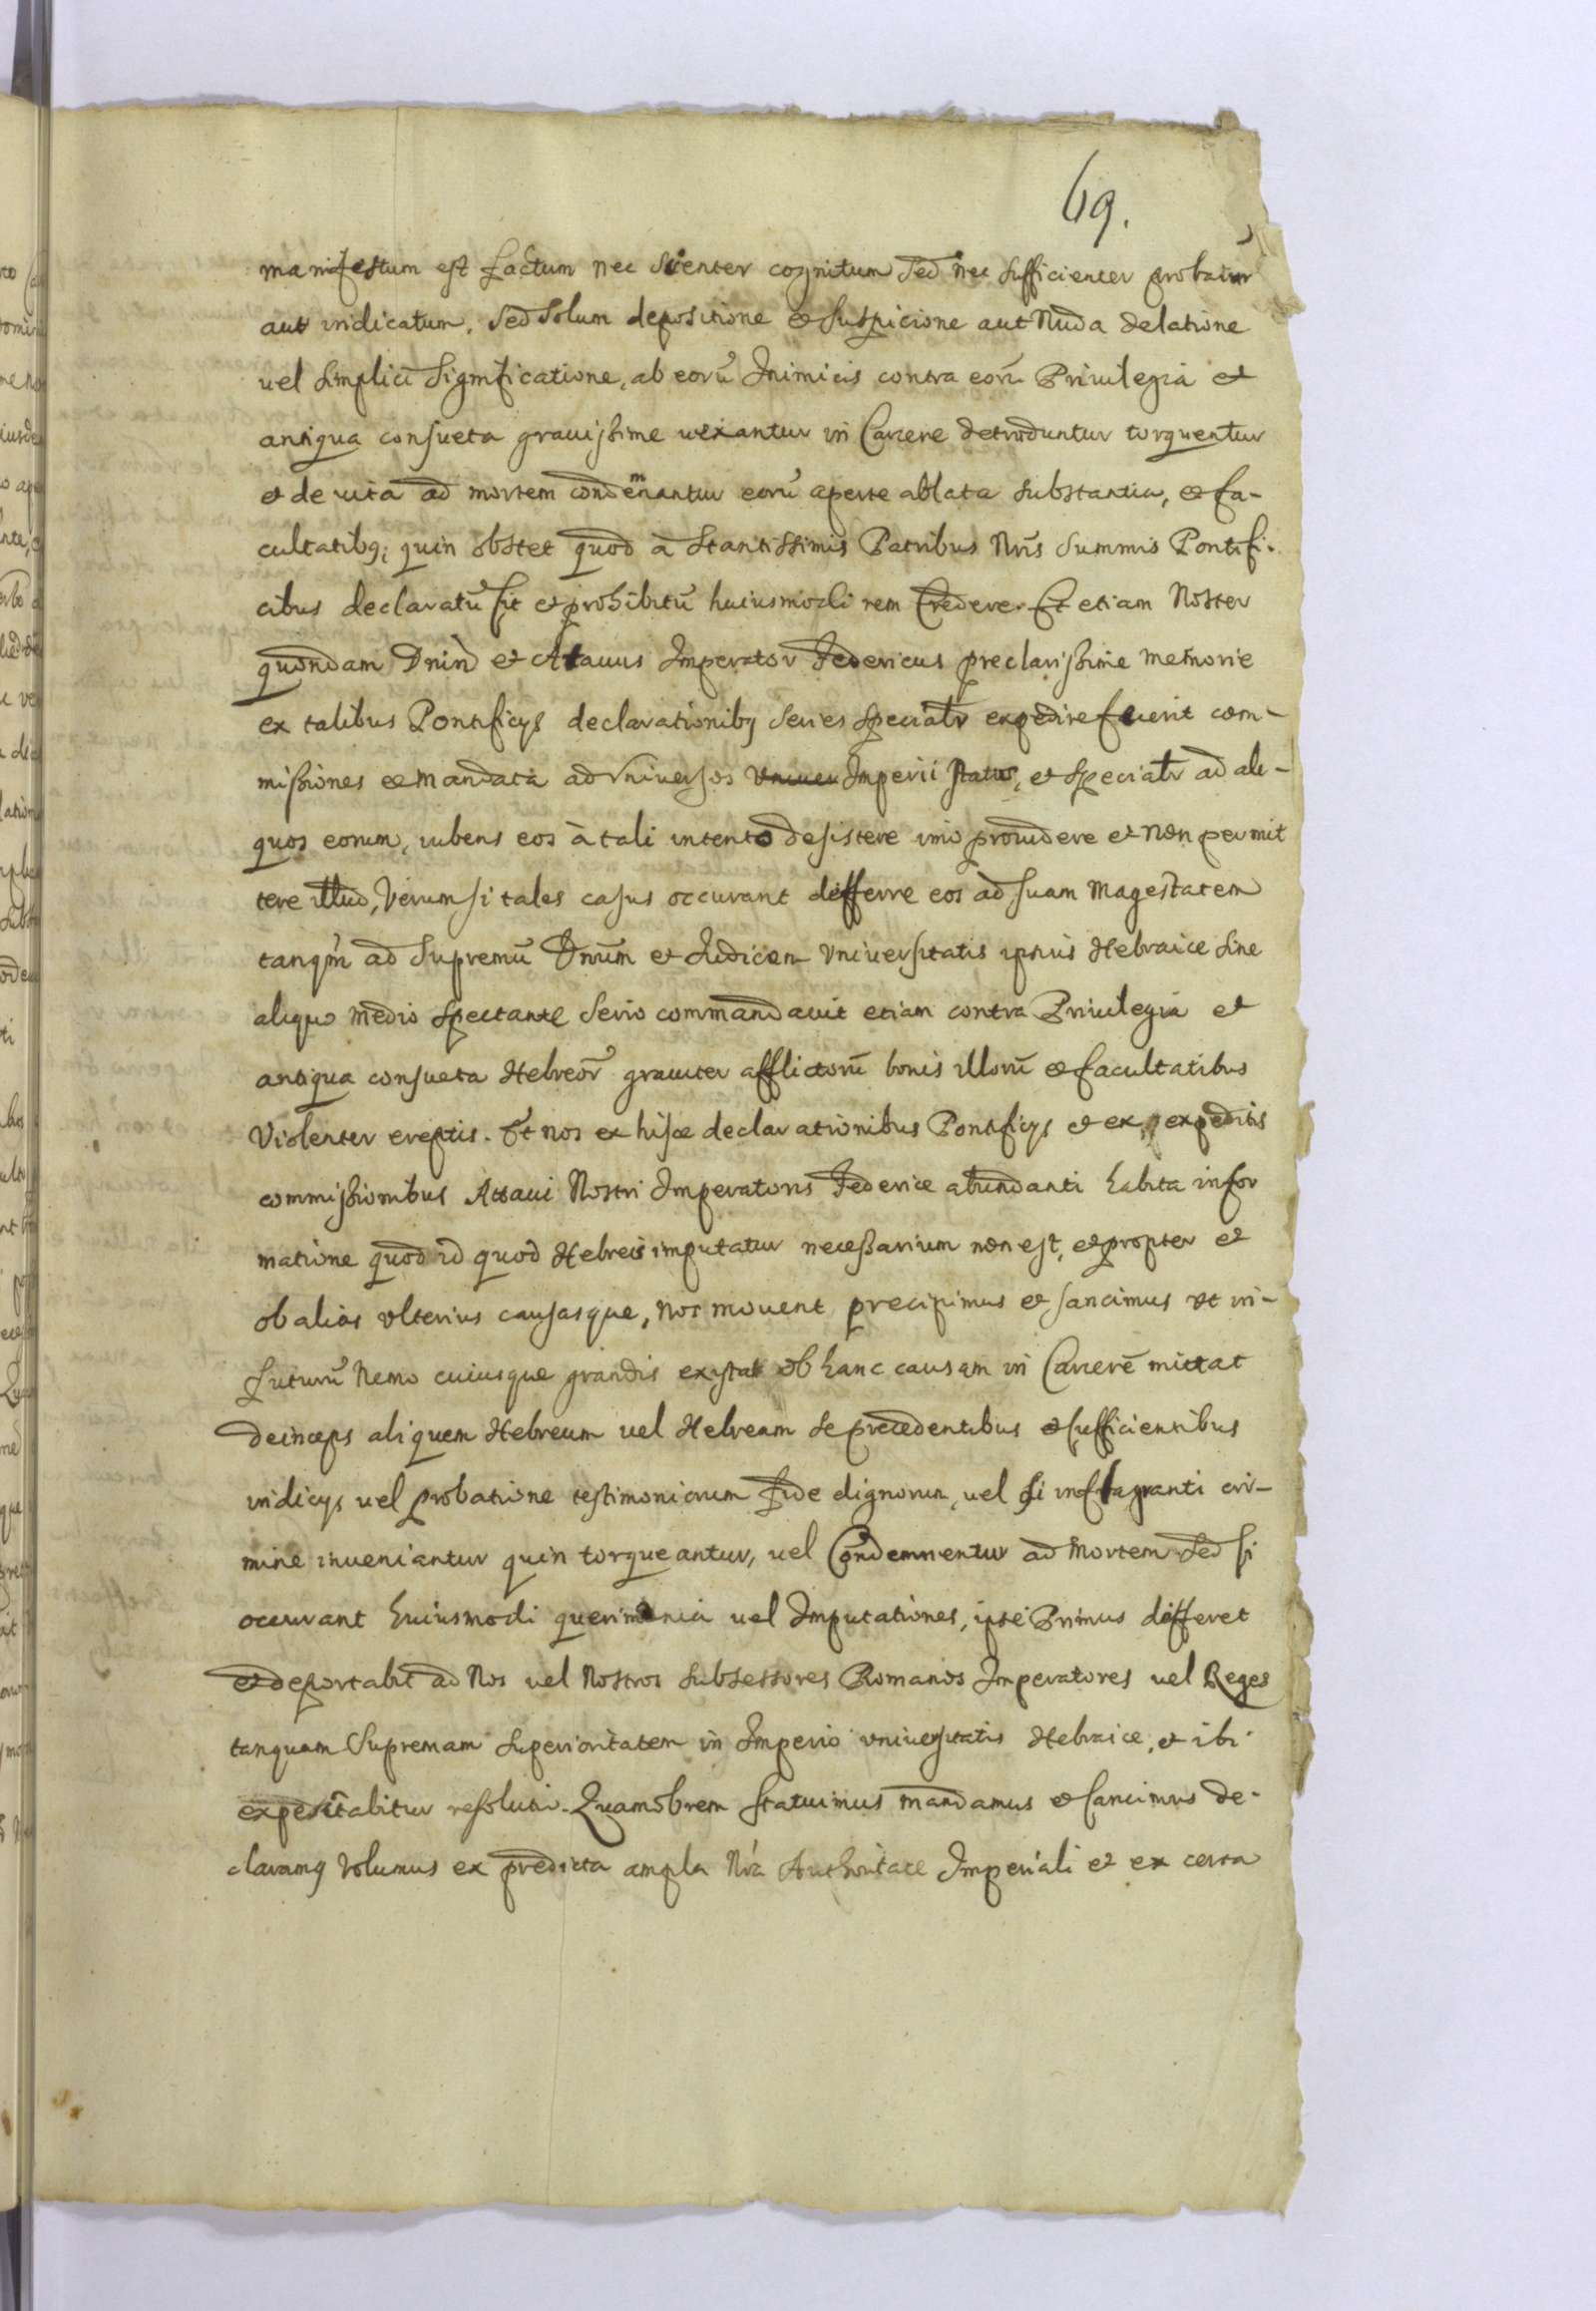 69.
manifestum est factum nec scienter cognitum sed nec sufficienter probatur
aut indicatum, sed solum depositione et suspicione aut nuda delatione
uel simplici significatione, ab eorũ Inimicis contra eorũ Priuilegia et
antiqua consueta grauissime uexantur in Carcere detruduntur torquentur
et de uita ad mortem condemnantur eorũ aperte ablata substantia, et fa-
cultatibq; quin obstet quod à Stantissimis Patribus Nr̃is Summis Pontifi-
cibus declaratũ sit et prohibitũ huiusmodi rem Credere. Et etiam Noster
quondam Dnin̄ et Attauus Imperator Federicus preclarissime memorie
ex talibus Pontificys declarationibq series speciatr expedire fecerit com-
missiones et mandata ad Vniuersos Vniuer Imperii status, et speciatr ad ali-
quos eorum, iubens eos à tali intento desistere imo prouidere et non permit
tere illud, Verum si tales casus occurant differre eos ad suam Magestatem
tanqm̃ ad Supremũ Dnũm et Iudicem Vniuersitatis ipsius Hebraice sine
aliquo medio spectante serio commandauit etiam contra Priuilegia et
antiqua consueta Hebreor̃ grauiter afflictorũ bonis illorũ et facultatibus
Violenter ereptis. Et nos ex hisce declarationibus Pontificys et ex expeditis
commissionibus Attaui Nostri Imperatoris Federice abundanti habita infor
matione quod id quod Hebreis imputatur necessarium non est, et propter et
ob alias vlterius causasque, nos mouent precipimus et sancimus vt in-
futurũ Nemo cuiusque grandis existat ob hanc causam in Carcerẽ mittat
deinceps aliquem Hebreum uel Hebream se precedentibus et sufficientibus
indicys uel probatione testimoniorum fide dignorum, uel si in flagranti cri-
mine inueniantur quin torqueantur, uel Condemnentur ad Mortem sed si
occurant huiusmodi querimonia uel Imputationes, ipse Primus differet
et deportabit ad Nos uel Nostros subsessores Romanos Imperatores uel Reges
tanquam Supremam superioritatem in Imperio vniuersitatis Hebraice, et ibi
expectabitur resolutio. Quamobrem statuimus mandamus et sancimus de-
claramq volumus ex predicta ampla Nr̃a Authoritate Imperiali et ex certa